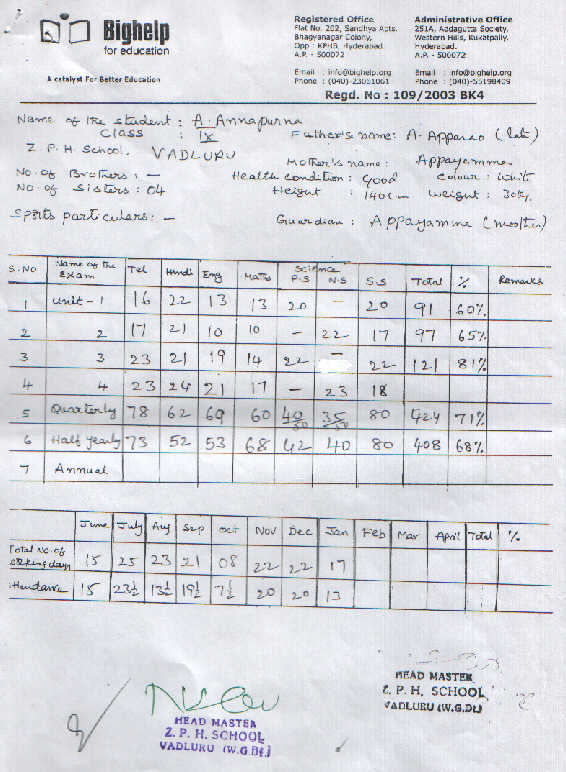 Bighelp
for education
A catalyst For Better Education
Registered Office
Flat No. 202, Sandhya Apts.
Bhagyanagar Colony,
Opp : KPHB, Hyderabad.
A.P. - 500072
Email : info@bighelp.org
Phone : (040)-23051061
Administrative Office
251A, Addagutta Society,
Western Hills, Kukatpally,
Hyderabad.
A.P. - 500072
Email : info@bighelp.org
Phone : (040)-55198409
Regd. No : 109/2003 BK4
Name of the student : A. Annapurna
Class : IX
Father's name: A. Apparao (late)
Z. P. H. School. VADLURU
Mother's name : Appayamma
No. of Brothers : -
Health condition : good Colour : white
No. of Sisters : 04
Height : 140cm Weight : 30k.
Sports particulars : -
Guardian : Appayamma (mother)
S.NO Name of the Exam Tel Hindi Eng Maths Science P.S N.S S.S Total % Remarks
1 Unit - 1 16 22 13 13 20 - 20 91 60%
2 2 17 21 10 10 - 22 17 97 65%
3 3 23 21 19 14 22 - 22 121 81%
4 4 23 24 21 17 - 23 18
5 Quarterly 78 62 69 60 40/50 35/50 80 424 71%
6 Half yearly 73 52 53 68 42 40 80 408 68%
7 Annual
June July Aug Sep Oct Nov Dec Jan Feb Mar April Total %
Total No. of working days 15 25 23 21 08 22 22 17
Attendance 15 23½ 13½ 19½ 7½ 20 20 13
HEAD MASTER
Z. P. H. SCHOOL
VADLURU (W.G.Dt.)
HEAD MASTER
Z. P. H. SCHOOL
VADLURU (W.G.Dt.)